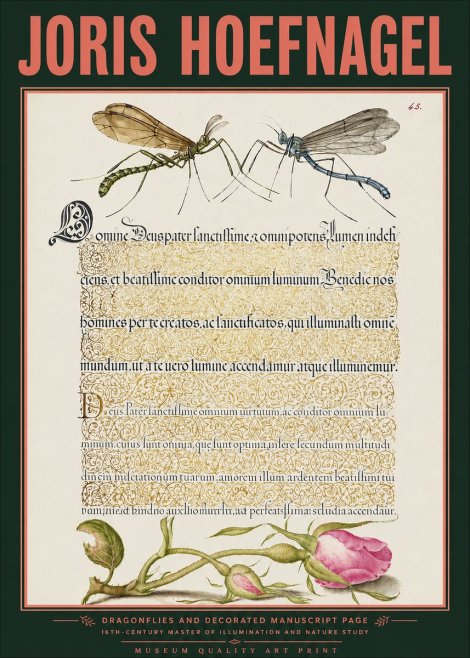 JORIS HOEFNAGEL
45.
Domine Deus pater sanctissime, & omnipotens, lumen indefi
ciens, et beatissime conditor omnium luminum. Benedic nos
homines per te creatos, ac sanctificatos, qui illuminasti omnē
mundum, ut a te vero lumine accendamur atque illuminemur.
Deus Pater sanctissime omnium virtutum, ac conditor omnium lu-
minum, cuius sunt omnia, que sunt optima, insere secundum multitudi
tuarum, amorem illum ardentem beatissimi tui
studia accendar.
DRAGONFLIES AND DECORATED MANUSCRIPT PAGE
16TH-CENTURY MASTER OF ILLUMINATION AND NATURE STUDY
MUSEUM QUALITY ART PRINT